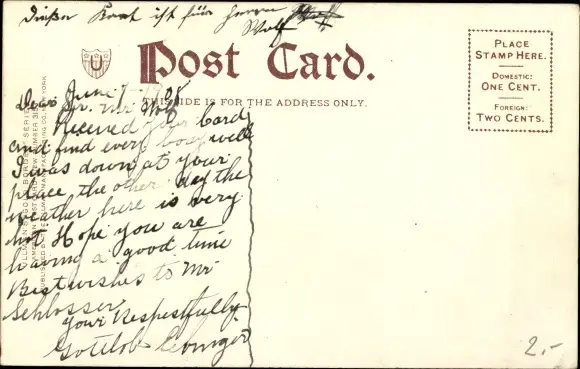 Dießer Kart ist für Herrn Wolf
Wolf
Post Card.
THIS SIDE IS FOR THE ADDRESS ONLY.
PLACE
STAMP HERE.
DOMESTIC:
ONE CENT.
FOREIGN:
TWO CENTS.
U
June 7
Dear Sr. Mr Wolf
Received your Card
and find every body well
I was down at your
place the other day the
weather here is very
hot Hope you are
having a good time
Best wishes to Mr
Schlosser
Your Respectfully
Gottlob
2.-